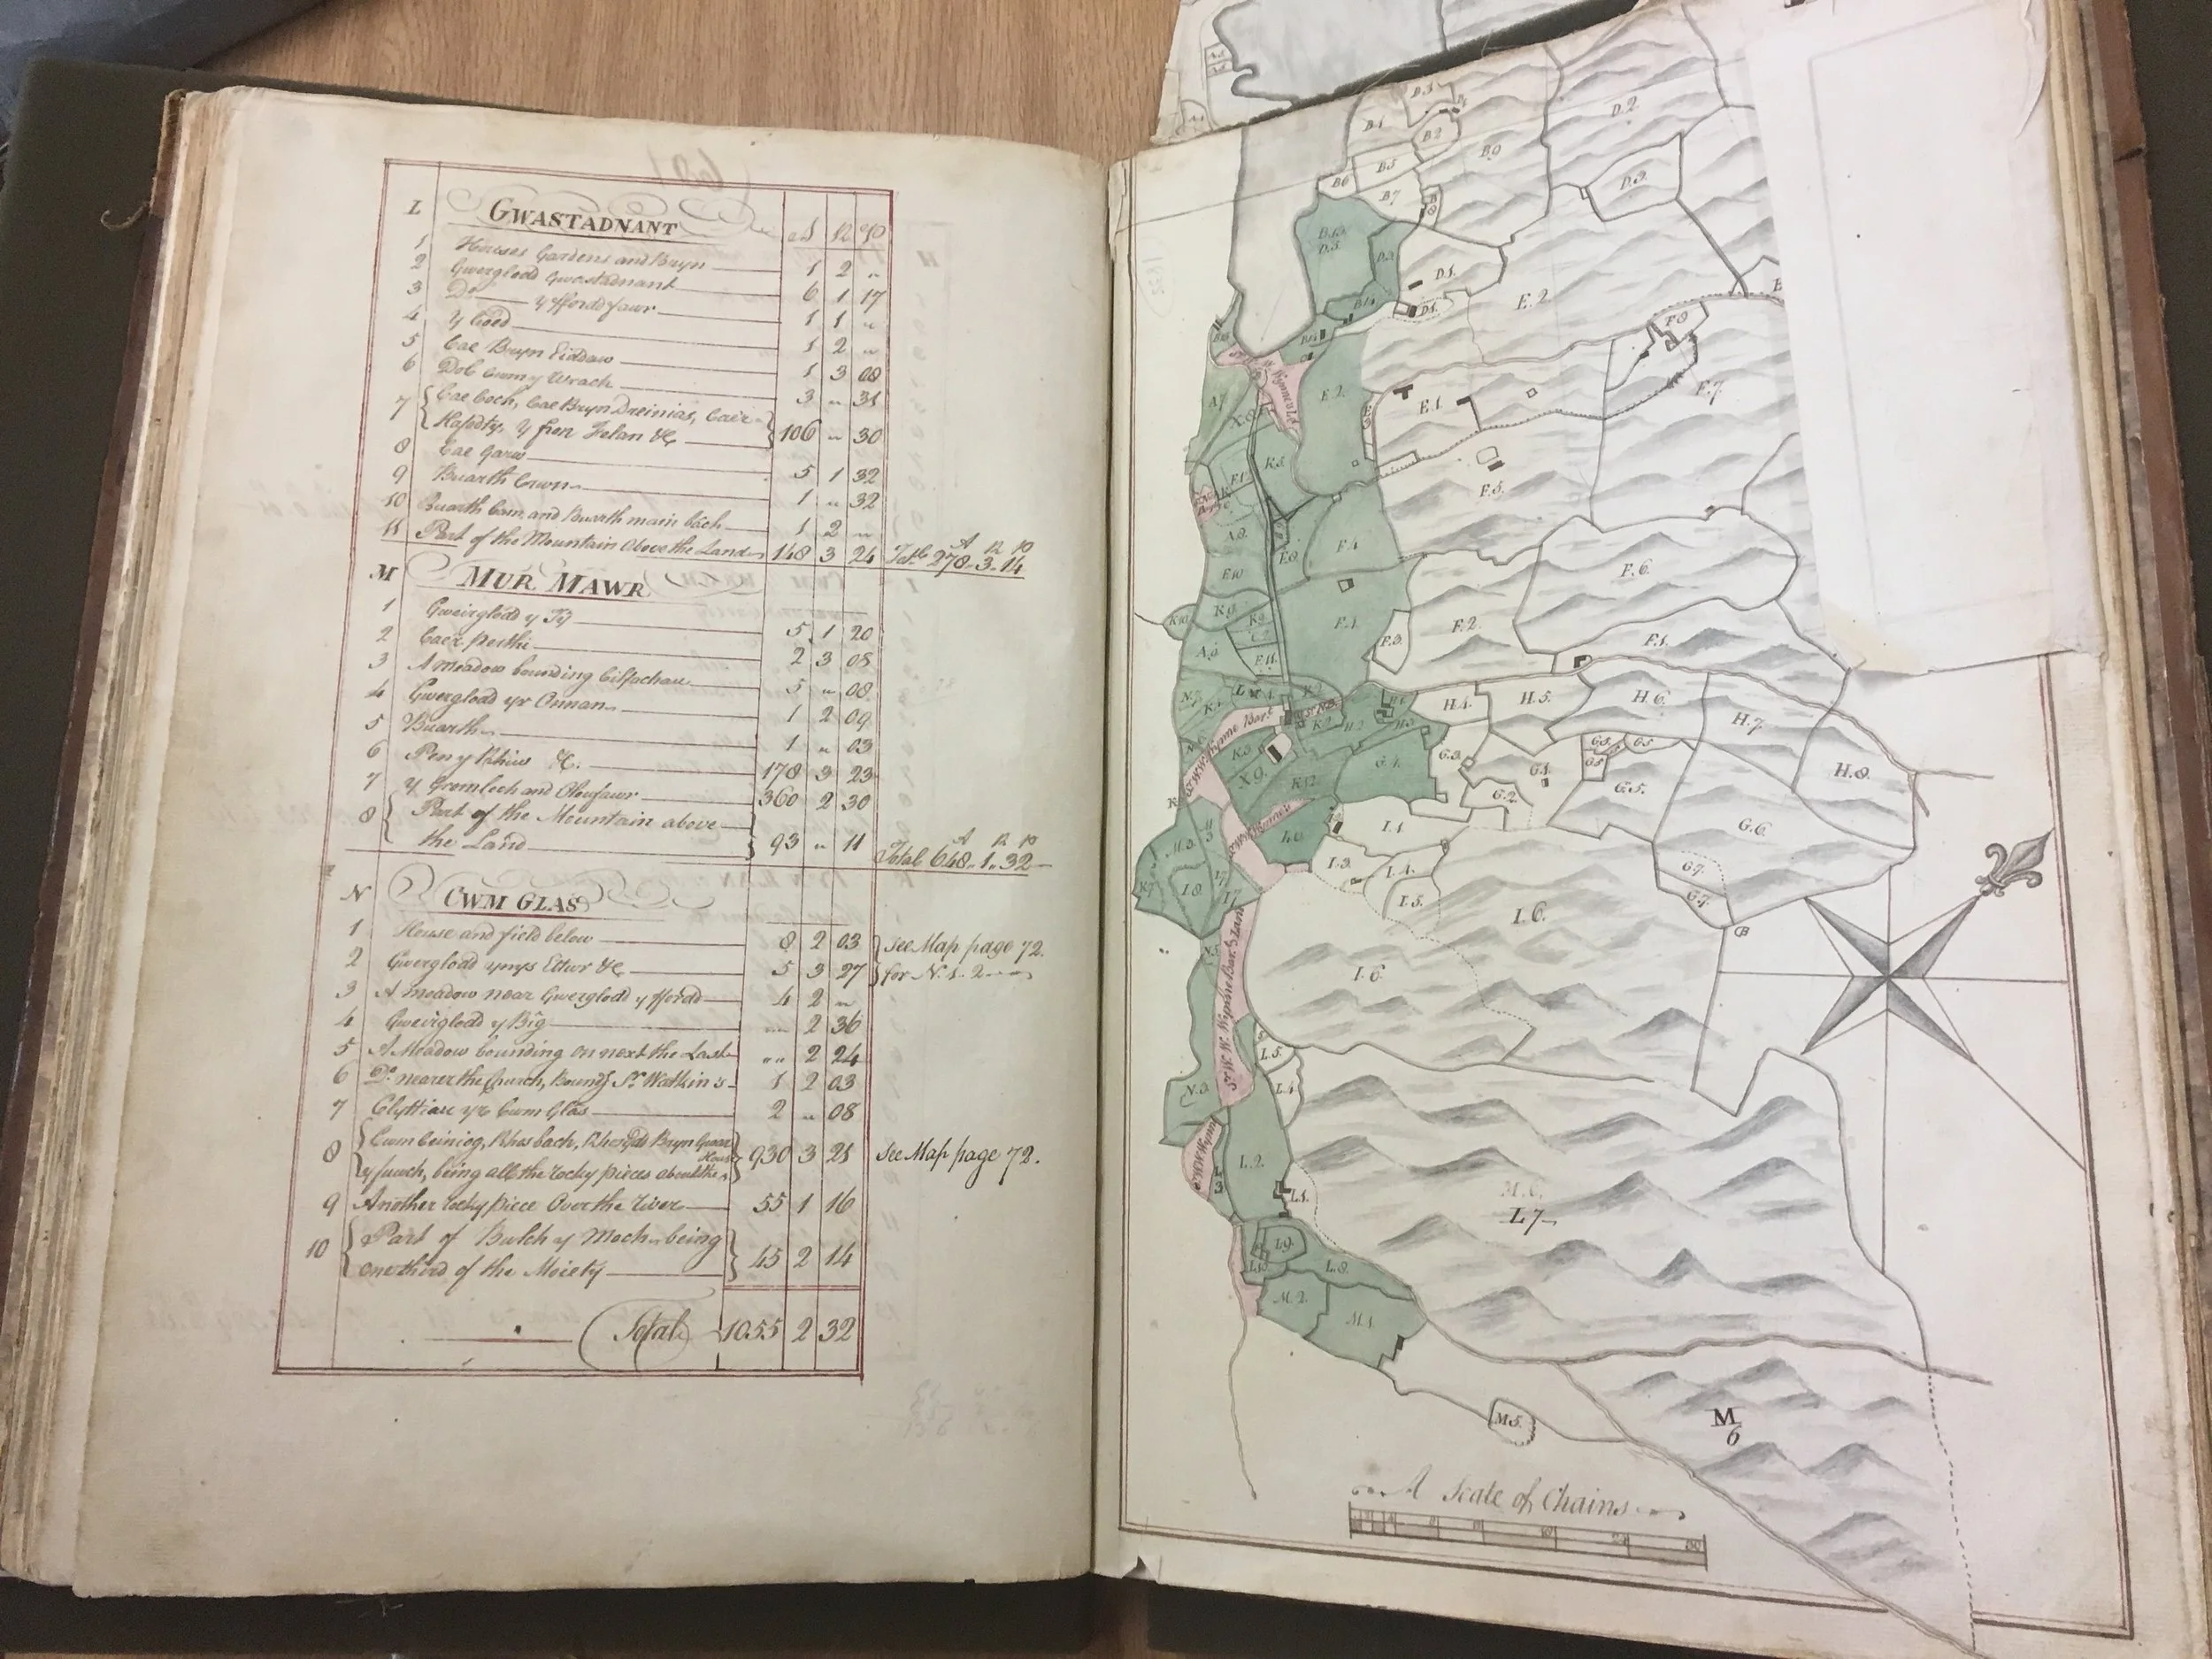 L GWASTADNANT A R P
1 Houses Gardens and Bryn 1 2 "
2 Gwerglodd Gwastadnant 6 1 17
3 Do y ffordd fawr 1 1 "
4 y Coed 1 2 "
5 Cae Bryn Eiddaw 1 3 08
6 Dol Cwm y Wrach 3 " 31
7 Cae Coch, Cae Bryn Dreinias, Caer
Hafodty, y fron &c 106 " 30
8 Cae Garw 5 1 32
9 Buarth Crwn 1 " 32
10 Buarth Cam, and Buarth main bach 1 2 "
11 Part of the Mountain above the Land 148 3 24 A R P
Totl 278.3.14
M MUR MAWR
1 Gweirglodd y Ty 5 1 20
2 Caer perthi 2 3 08
3 A meadow bounding Cilfachau 5 " 08
4 Gwerglodd yr Onnan 1 2 09
5 Buarth 1 " 03
6 Pen y &c. 178 3 23
7 y Gromlech and 360 2 30
8 Part of the Mountain above
the Land 93 " 11 A R P
Total 648.1.32
N CWM GLAS
1 House and field below 8 2 03 see Map page 72.
2 Gwerglodd ynys Ettwr &c 5 3 27 for N.1.2
3 A meadow near Gwerglodd y ffordd 4 2 "
4 Gweirglodd y Big " 2 36
5 A Meadow bounding on next the Last " 2 24
6 Do nearer the Church, Bounds Sr. Watkin's 1 2 03
7 Clyttiau yr Cwm Glas 2 " 08
8 Cwm Beiniog, Rhos bach, Bryn
House
y fuwch, being all the rocky pieces about the 930 3 21 see Map page 72.
9 Another rocky piece Over the River 55 1 16
10 Part of Bulch y Moch being
one third of the Moiety 45 2 14
Total 1055 2 32
D.2
B1
B2
B9
B5
B6
B7
D.3.
D.1.
D1.
E.2.
F8
F.7
E.1.
E.2.
K.5.
F.5.
A.8.
E.10
F.4
F.6.
F.1.
F.2.
F.3.
K9.
A.9
F.11.
H.4.
H.5.
H.6
H.7
H.8.
G.3.
G.1.
G.2.
G.5.
G.6.
G.4.
G.7.
G.7.
K.3
X.9.
K.12
I.1
I.3.
I.4.
I.5.
I.6.
I.6
I.8
I.7
M.3
K.7
Sr. W. W. Wynne Bart.s Land
N.5
N.3
L.5.
L.4
L.2.
L
3
L1.
L9.
L.8.
M.2.
M.1.
M.6.
L7
M5.
M
6
A Scale of Chains